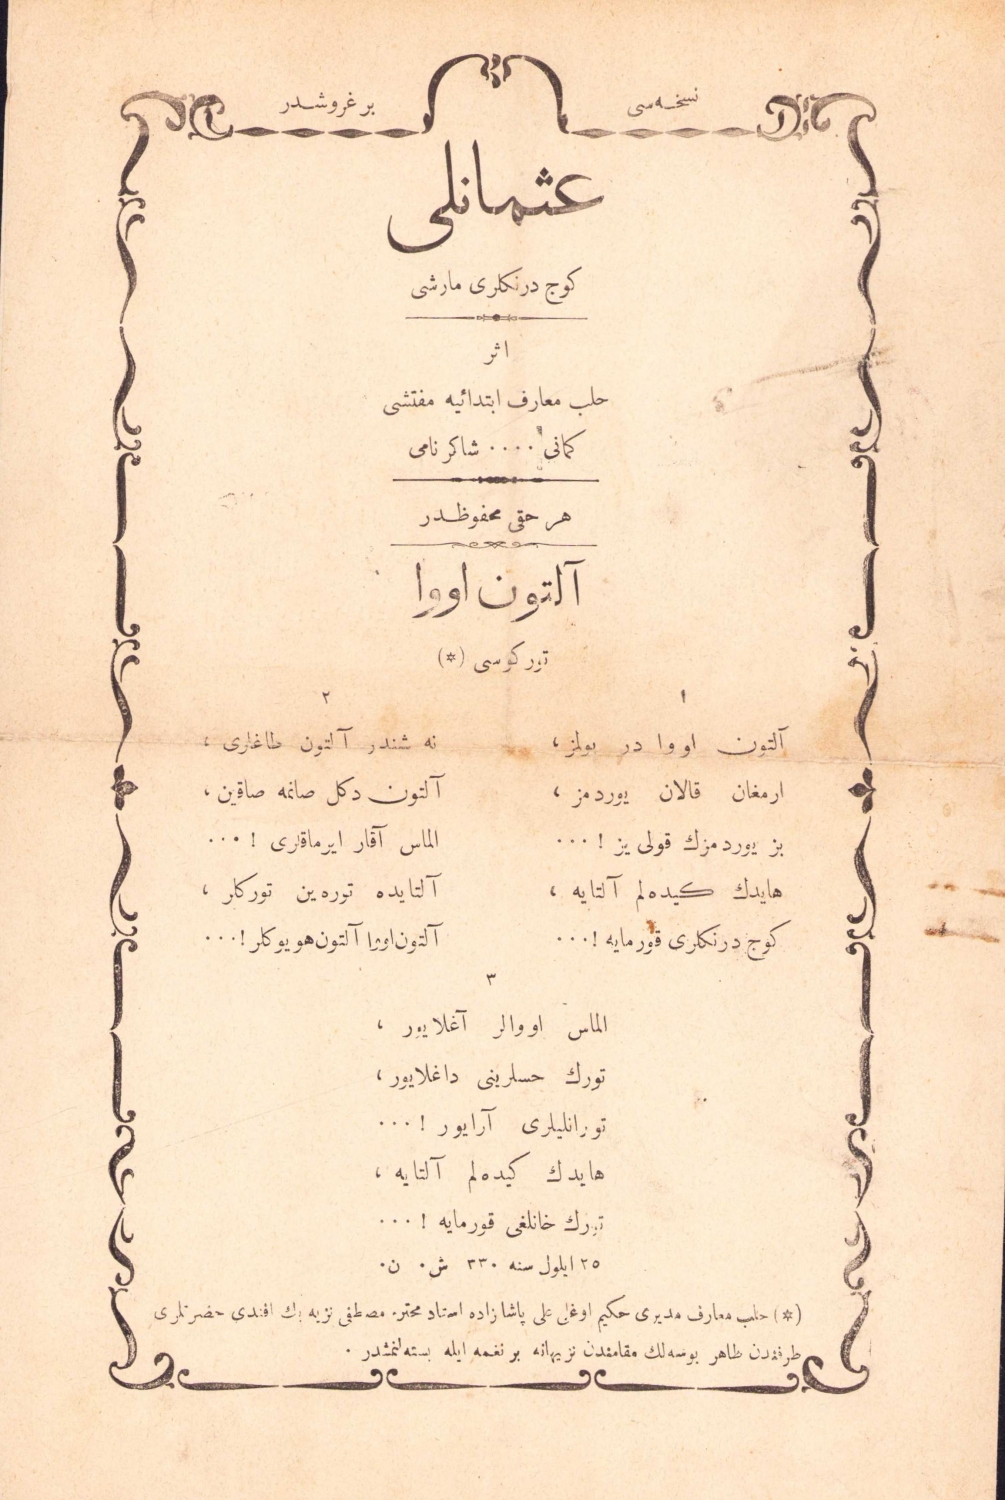 نسخه‌سی بر غروشدر
عثمانلی
كوج درنكلری مارشی
اثر
حلب معارف ابتدائیه مفتشی
كمانی ۰۰۰۰ شاكر نامی
هر حقی محفوظدر
آلتون اووا
توركوسی (*)
۱
آلتون اووا در یولمز ،
ارمغان قالان یوردمز ،
بز یوردمزك قولی یز ! ۰۰۰
هایدك كیده‌لم آلتایه ،
كوج درنكلری قورمایه !۰۰۰
۲
نه شندر آلتون طاغلری ،
آلتون دكل صانمه صاقین ،
الماس آقار ایرماقلری ! ۰۰۰
آلتایده توره‌ین توركلر ،
آلتون‌اووا آلتون‌هویوكلر !۰۰۰
۳
الماس اووالر آغلایور ،
تورك حسلرینی داغلایور ،
تورانلیلری آرایور ! ۰۰۰
هایدك كیده‌لم آلتایه ،
تورك خانلغی قورمایه ! ۰۰۰
۲۵ ایلول سنه ۳۳۰ ش۰ ن۰
(*) حلب معارف مدیری حكیم اوغلی علی پاشا زاده استاد محترم مصطفی نزیه بك افندی حضرتلری
طرفندن طاهر بوسه‌لك مقامندن نزیهانه بر نغمه ایله بسته‌لنمشدر ۰